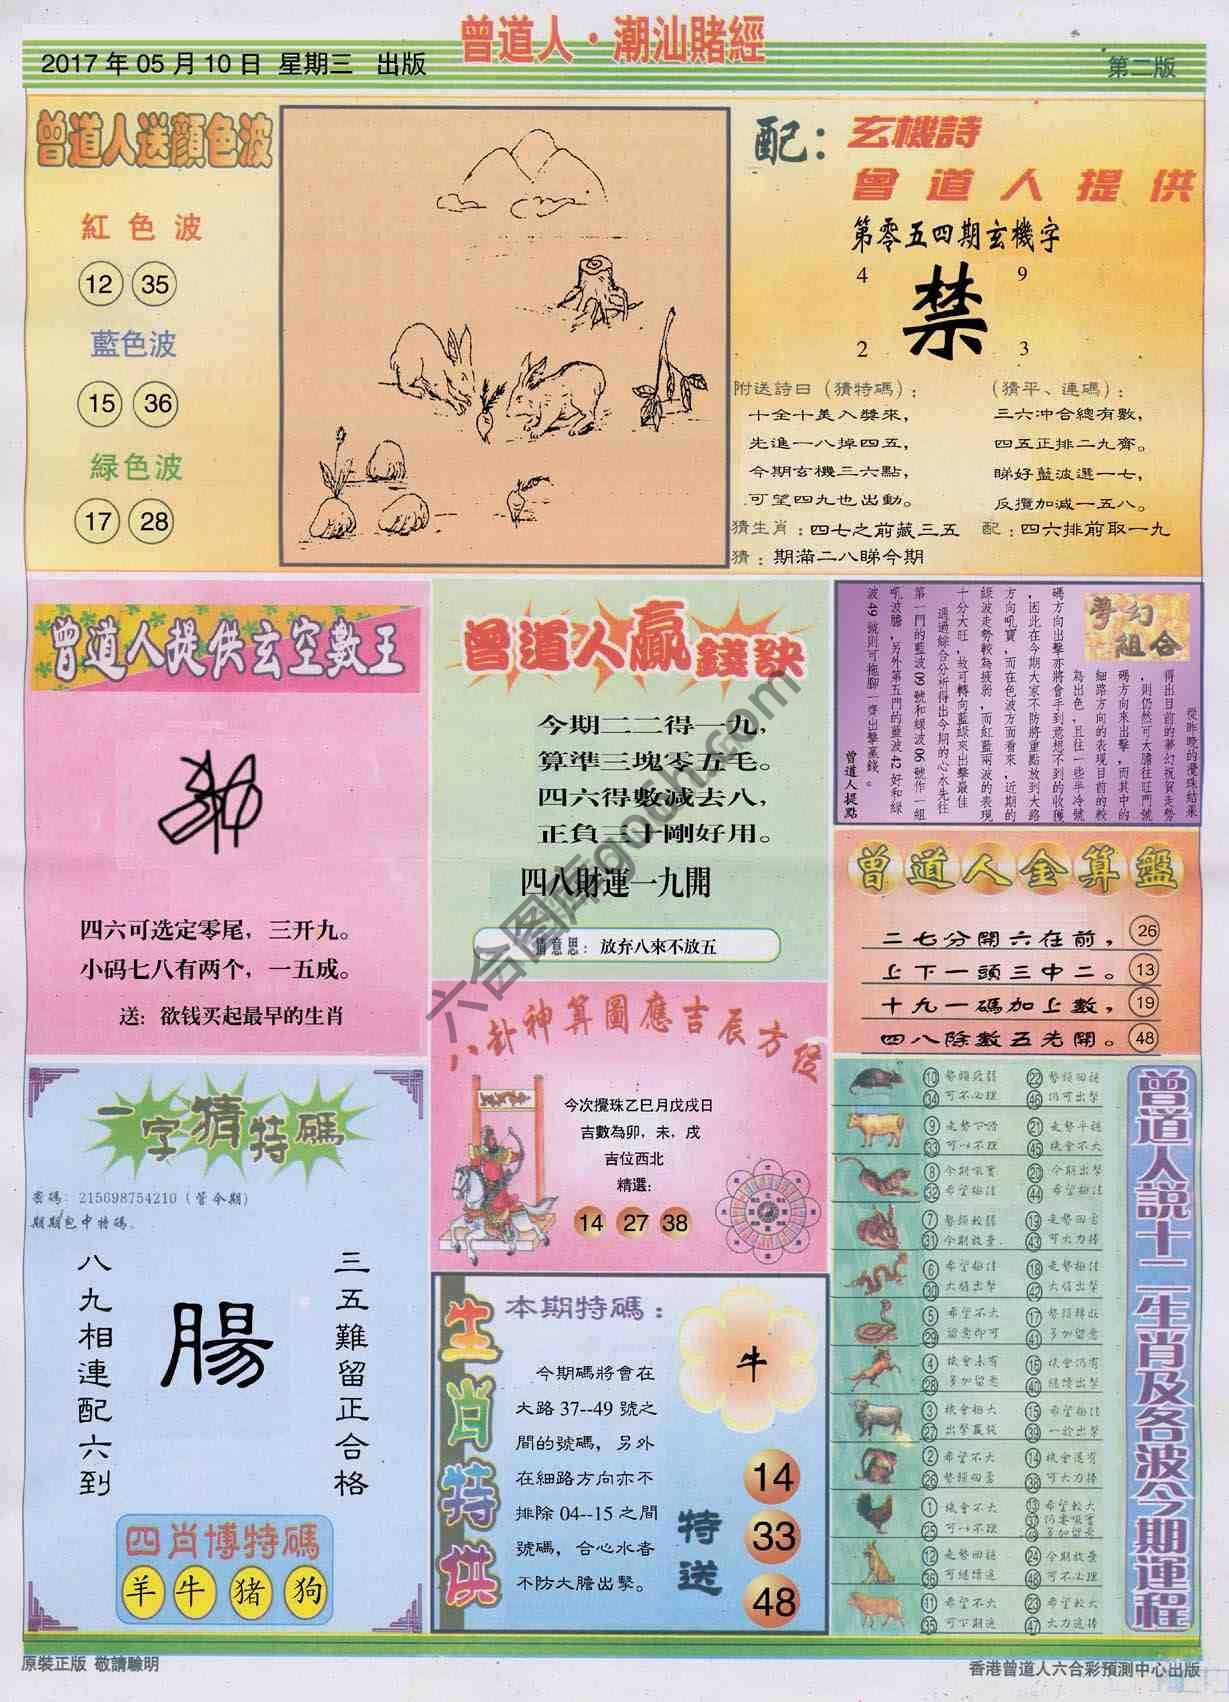 曾道人·潮汕賭經
2017年05月10日 星期三 出版
第二版
曾道人送顏色波
紅色波
12 35
藍色波
15 36
綠色波
17 28
配：玄機詩
曾道人提供
第零五四期玄機字
4 9
禁
2 3
附送詩曰（猜特碼）：
十全十美入獎來，
先進一八掉四五，
今期玄機三六點，
可望四九也出動。
（猜平、連碼）：
三六冲合總有數，
四五正排二九齊。
睇好藍波選一七，
反攬加減一五八。
猜生肖：四七之前藏三五
配：四六排前取一九
猜：期滿二八睇今期
曾道人提供玄空數王
四六可选定零尾，三开九。
小码七八有两个，一五成。
送：欲钱买起最早的生肖
曾道人贏錢訣
今期二二得一九，
算準三塊零五毛。
四六得數減去八，
正負三十剛好用。
四八財運一九開
猜意思：放弃八來不放五
夢幻組合
從昨晚的攪珠結果
得出目前的夢幻祝賀走勢
，則仍然可大膽往旺門號
碼方向來出擊，而其中的
細路方向的表現目前的較
為出色，且往一些半冷號
碼方向出擊亦將會手到意想不到的收穫
，因此在今期大家不防將重點放到大路
方向吼寶，而在色波方面看來，近期的
綠波走勢較為疲弱，而紅藍兩波的表現
十分大旺，故可轉向藍綠來出擊最佳
通過綜合分析得出今期的心水先往
第一門的藍波09號和綠波06號作一組
吼波膽，另外第五門的藍波42好和綠
波49號則可拖腳一齊出擊贏錢。
曾道人提點
曾道人金算盤
二七分開六在前， 26
上下一頭三中二。 13
十九一碼加上數， 19
四八除數五先開。 48
八卦神算圖應吉辰方位
今次攪珠乙巳月戊戌日
吉數為卯，未，戌
吉位西北
精選：
14 27 38
一字猜特碼
密碼：215698754210（管今期）
期期包中特碼。
三五難留正合格
腸
八九相連配六到
四肖博特碼
羊 牛 猪 狗
生肖特供
本期特碼：
牛
今期碼將會在
大路37--49號之
間的號碼，另外
在細路方向亦不
排除04--15之間
號碼，合心水者
不防大膽出擊。
特送
14
33
48
曾道人說十二生肖及各波今期運程
10 勢頭疲弱 22 勢頭回穩
34 可不必理 46 仍可出擊
9 走勢下滑 21 走勢平穩
33 可以不理 45 機會不大
8 今期吼實 20 今期出擊
32 希望極佳 44 希望極佳
7 勢頭較弱 19 走勢回落
31 今期放量 43 可大力捧
6 希望極佳 18 走勢極佳
30 大膽出擊 42 大膽出擊
5 希望不大 17 勢頭轉旺
29 留意即可 41 多加留意
4 機會未有 16 機會仍有
28 多加留意 40 繼續出擊
3 機會極大 15 希望極佳
27 出擊贏錢 39 一於出擊
2 希望不大 14 機會還有
26 勢頭回落 38 可大力捧
1 機會不大 13 希望較大
25 可以不理 37 仍要吼實
多加留意
12 走勢回穩 24 今期放量
36 可繼續追 48 可不必理
11 希望不大 23 希望較大
35 可下期追 47 大力追捧
原裝正版 敬請驗明
香港曾道人六合彩預測中心出版
六合图库gouth.com